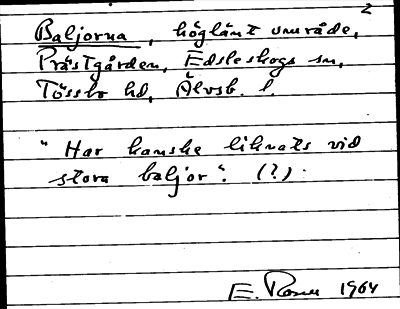 2
Baljorna, höglänt område,
Prästgården, Edsleskogs sn,
Tössbo hd, Älvsb. l.
"Har kanske liknats vid
stora baljor". (?)
E. 1964